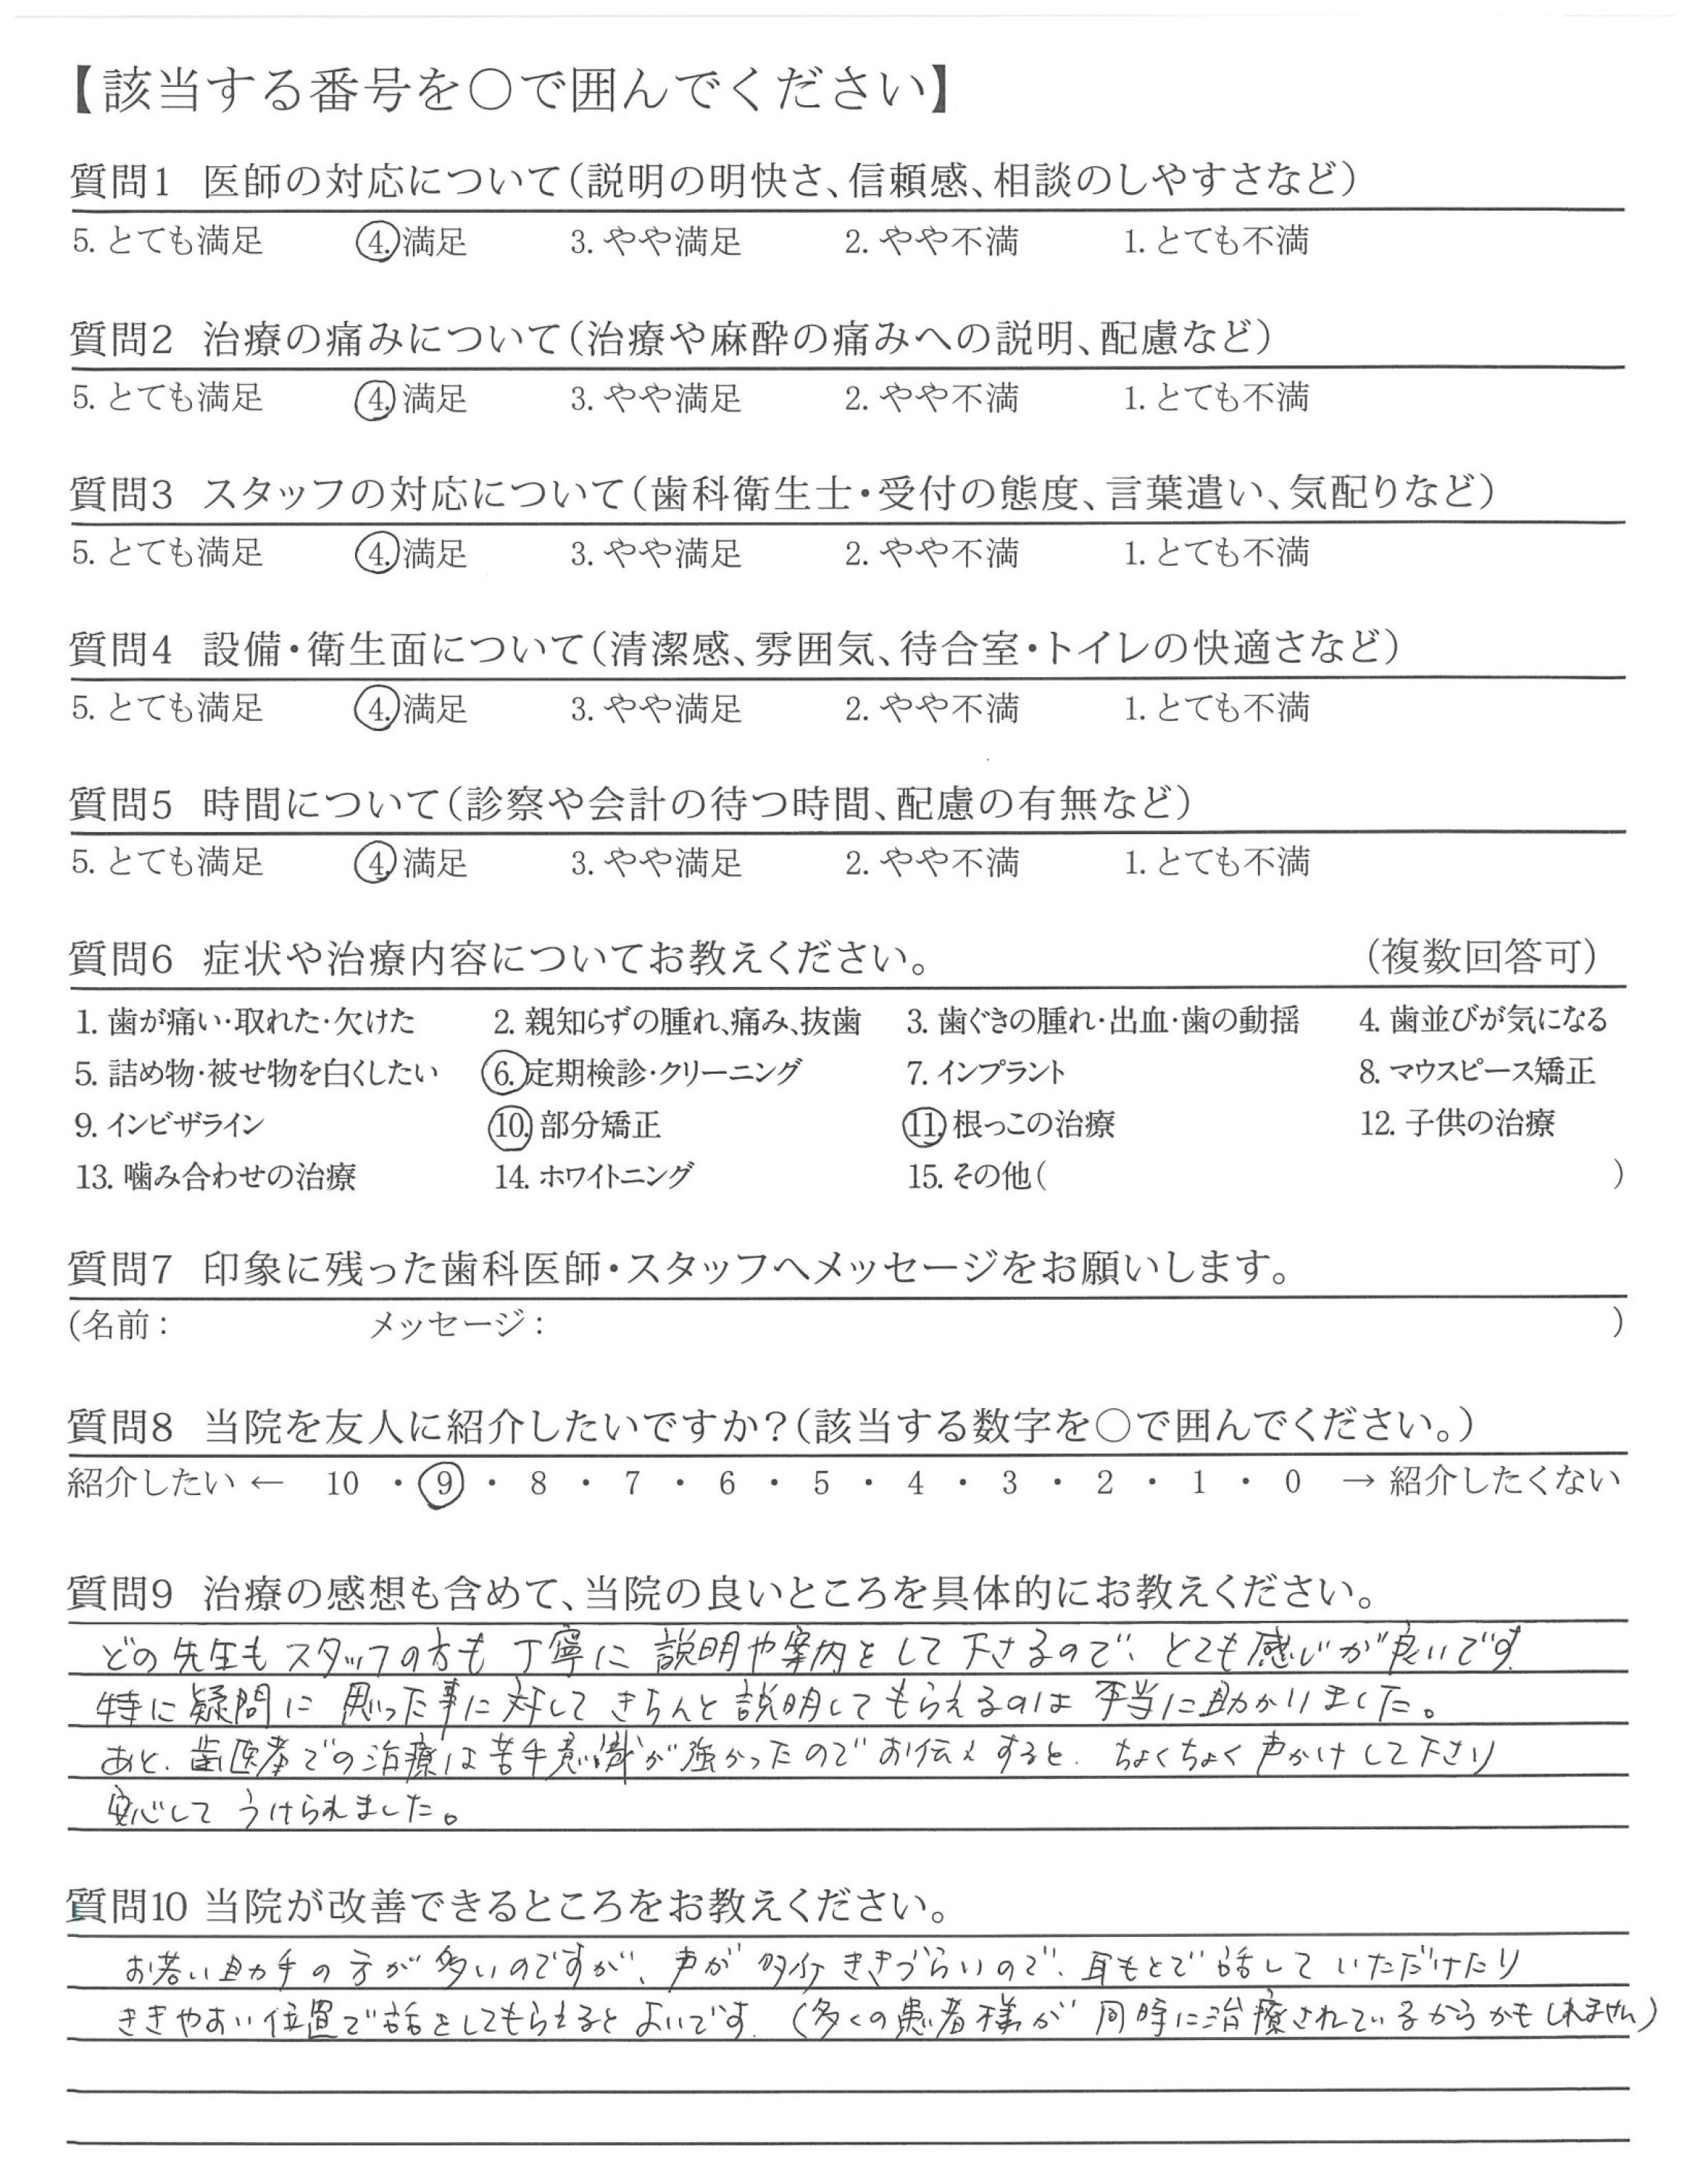 【該当する番号を○で囲んでください】
質問1 医師の対応について(説明の明快さ、信頼感、相談のしやすさなど)
5. とても満足 4. 満足 3. やや満足 2. やや不満 1. とても不満
質問2 治療の痛みについて(治療や麻酔の痛みへの説明、配慮など)
5. とても満足 4. 満足 3. やや満足 2. やや不満 1. とても不満
質問3 スタッフの対応について(歯科衛生士・受付の態度、言葉遣い、気配りなど)
5. とても満足 4. 満足 3. やや満足 2. やや不満 1. とても不満
質問4 設備・衛生面について(清潔感、雰囲気、待合室・トイレの快適さなど)
5. とても満足 4. 満足 3. やや満足 2. やや不満 1. とても不満
質問5 時間について(診察や会計の待つ時間、配慮の有無など)
5. とても満足 4. 満足 3. やや満足 2. やや不満 1. とても不満
質問6 症状や治療内容についてお教えください。 (複数回答可)
1. 歯が痛い・取れた・欠けた 2. 親知らずの腫れ、痛み、抜歯 3. 歯ぐきの腫れ・出血・歯の動揺 4. 歯並びが気になる
5. 詰め物・被せ物を白くしたい 6. 定期検診・クリーニング 7. インプラント 8. マウスピース矯正
9. インビザライン 10. 部分矯正 11. 根っこの治療 12. 子供の治療
13. 噛み合わせの治療 14. ホワイトニング 15. その他( )
質問7 印象に残った歯科医師・スタッフへメッセージをお願いします。
(名前: メッセージ: )
質問8 当院を友人に紹介したいですか?(該当する数字を○で囲んでください。)
紹介したい ← 10 ・ 9 ・ 8 ・ 7 ・ 6 ・ 5 ・ 4 ・ 3 ・ 2 ・ 1 ・ 0 → 紹介したくない
質問9 治療の感想も含めて、当院の良いところを具体的にお教えください。
どの先生もスタッフの方も丁寧に説明や案内をして下さるので、とても感じが良いです。
特に疑問に思った事に対してきちんと説明してもらえるのは本当に助かりました。
あと、歯医者での治療は苦手意識が強かったのでお伝えすると、ちょくちょく声かけして下さり
安心してうけられました。
質問10 当院が改善できるところをお教えください。
お若い助手の方が多いのですが、声が多分ききづらいので、耳もとで話していただけたり
ききやすい位置で話をしてもらえるとよいです。(多くの患者様が同時に治療されているからかもしれません)